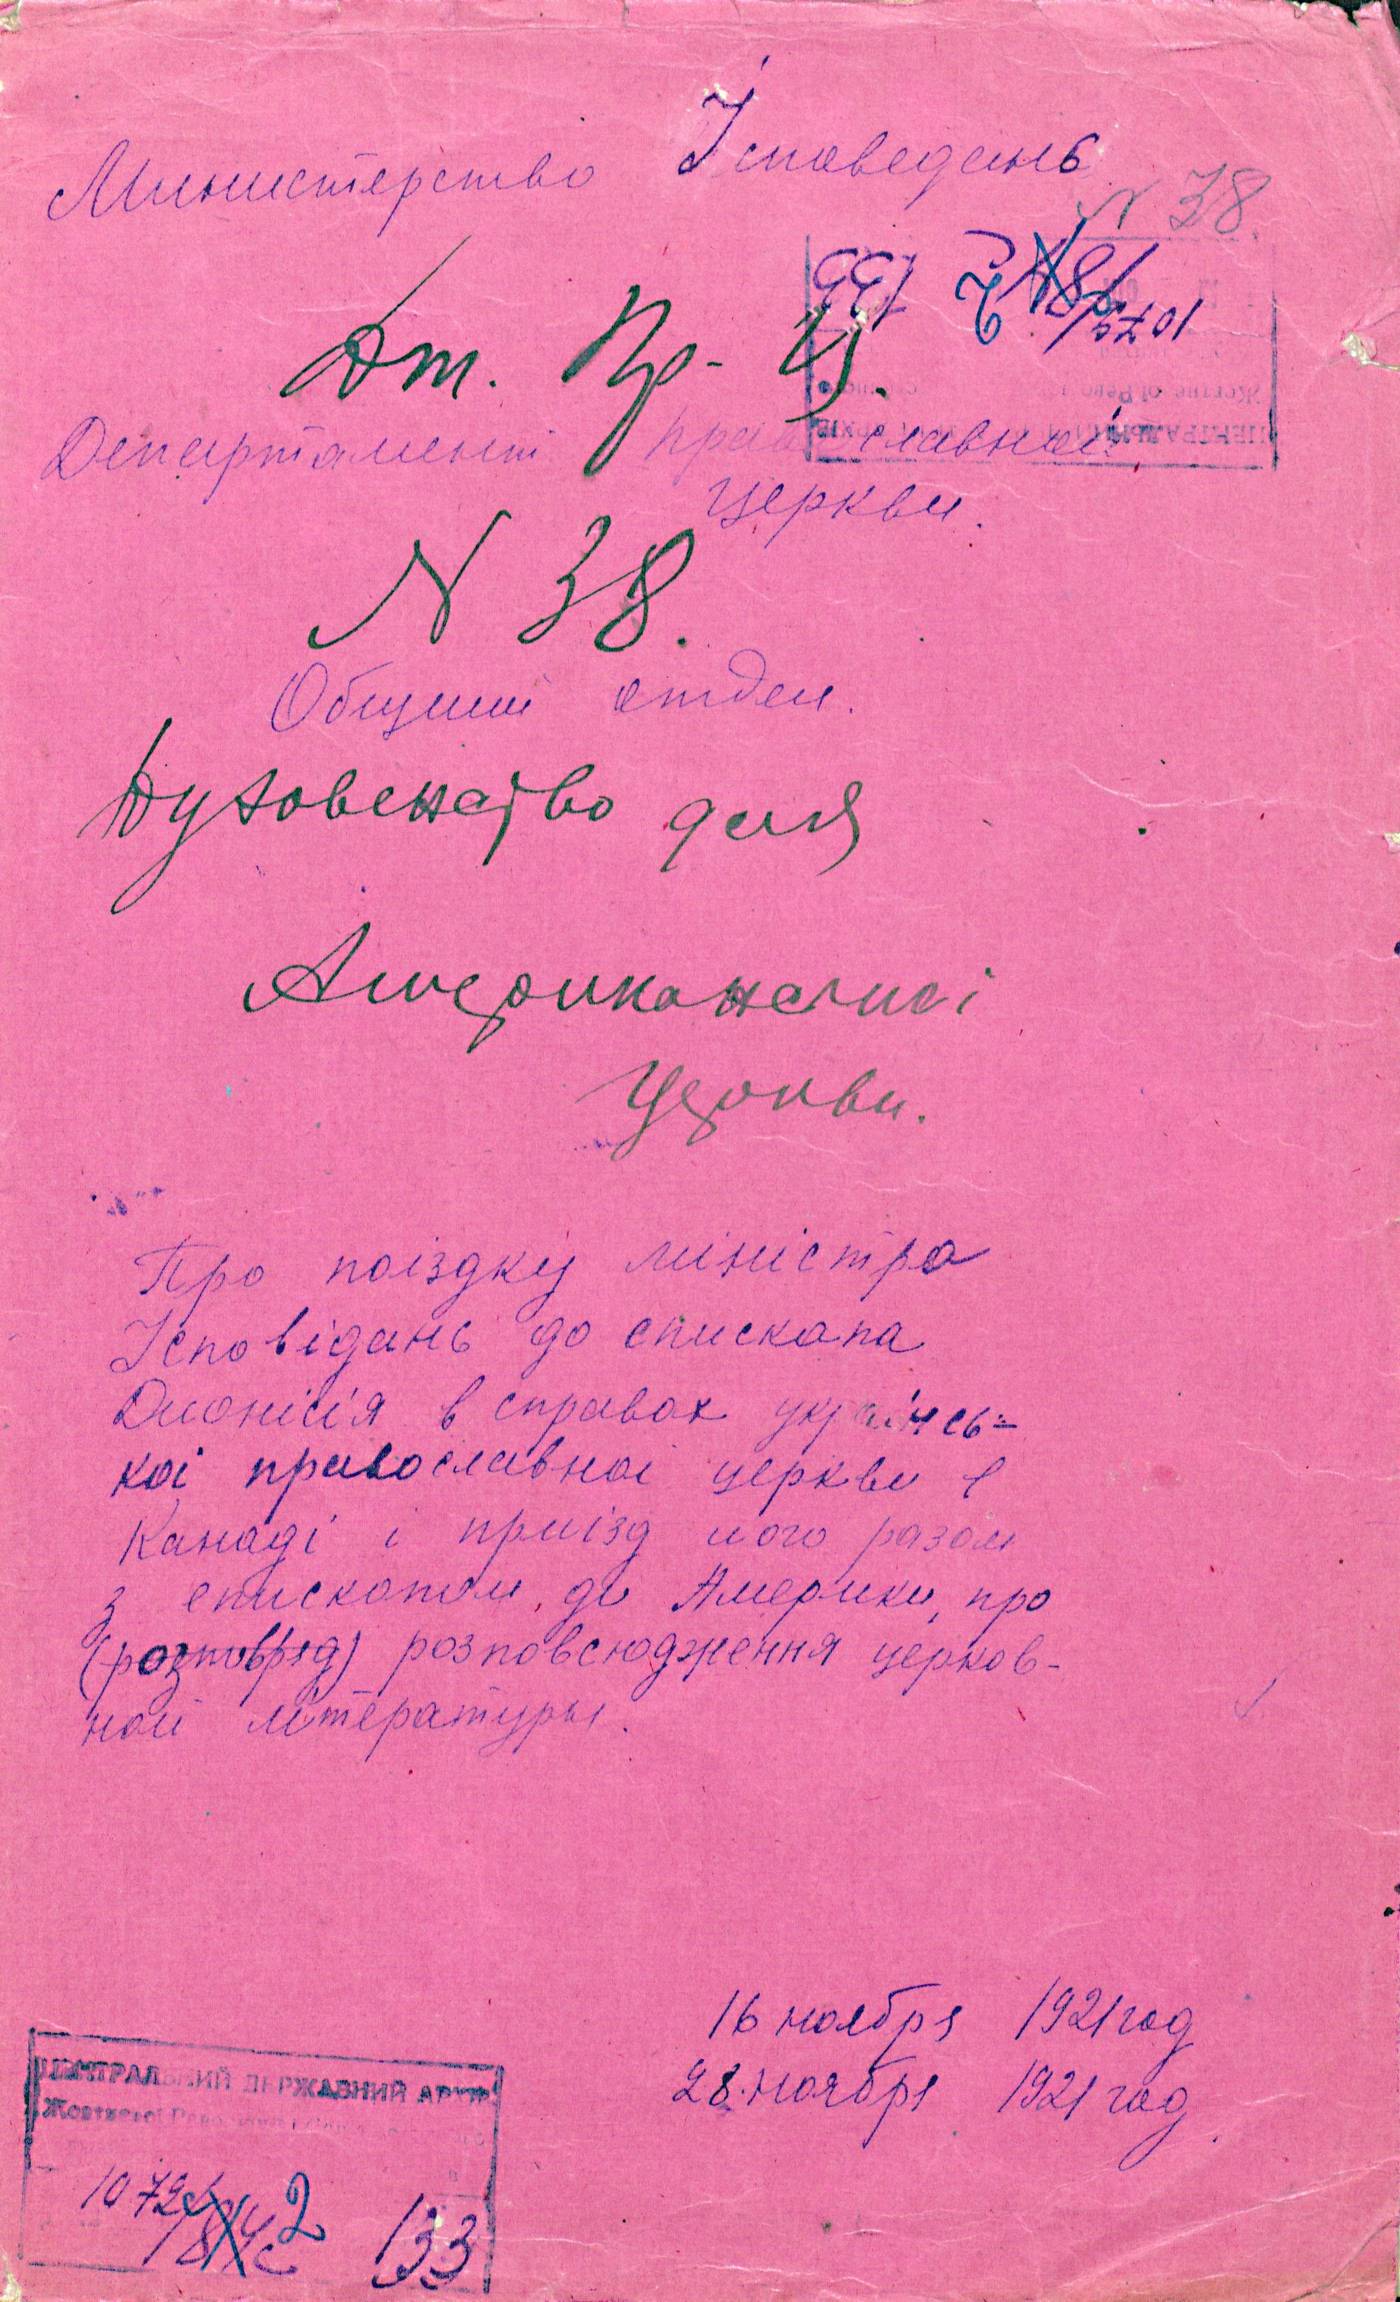 Министерство Ісповедань
N 38.
Дт. Пр- Ц.
Департамент православної
церкви.
N 38.
Общий отдел.
Духовенство для
Американської
Церкви.
Про поїздку міністра
Ісповідань до єпископа
Дионісія в справах українсь=
кої православної церкви в
Канаді і приїзд його разом
з епископом до Америки, про
розповсюдження церков-
ної літературы.
16 ноября 1921 год
28 ноября 1921 год
ЦЕНТРАЛЬНИЙ ДЕРЖАВНИЙ АРХІВ
Жовтневої
1072
2
133